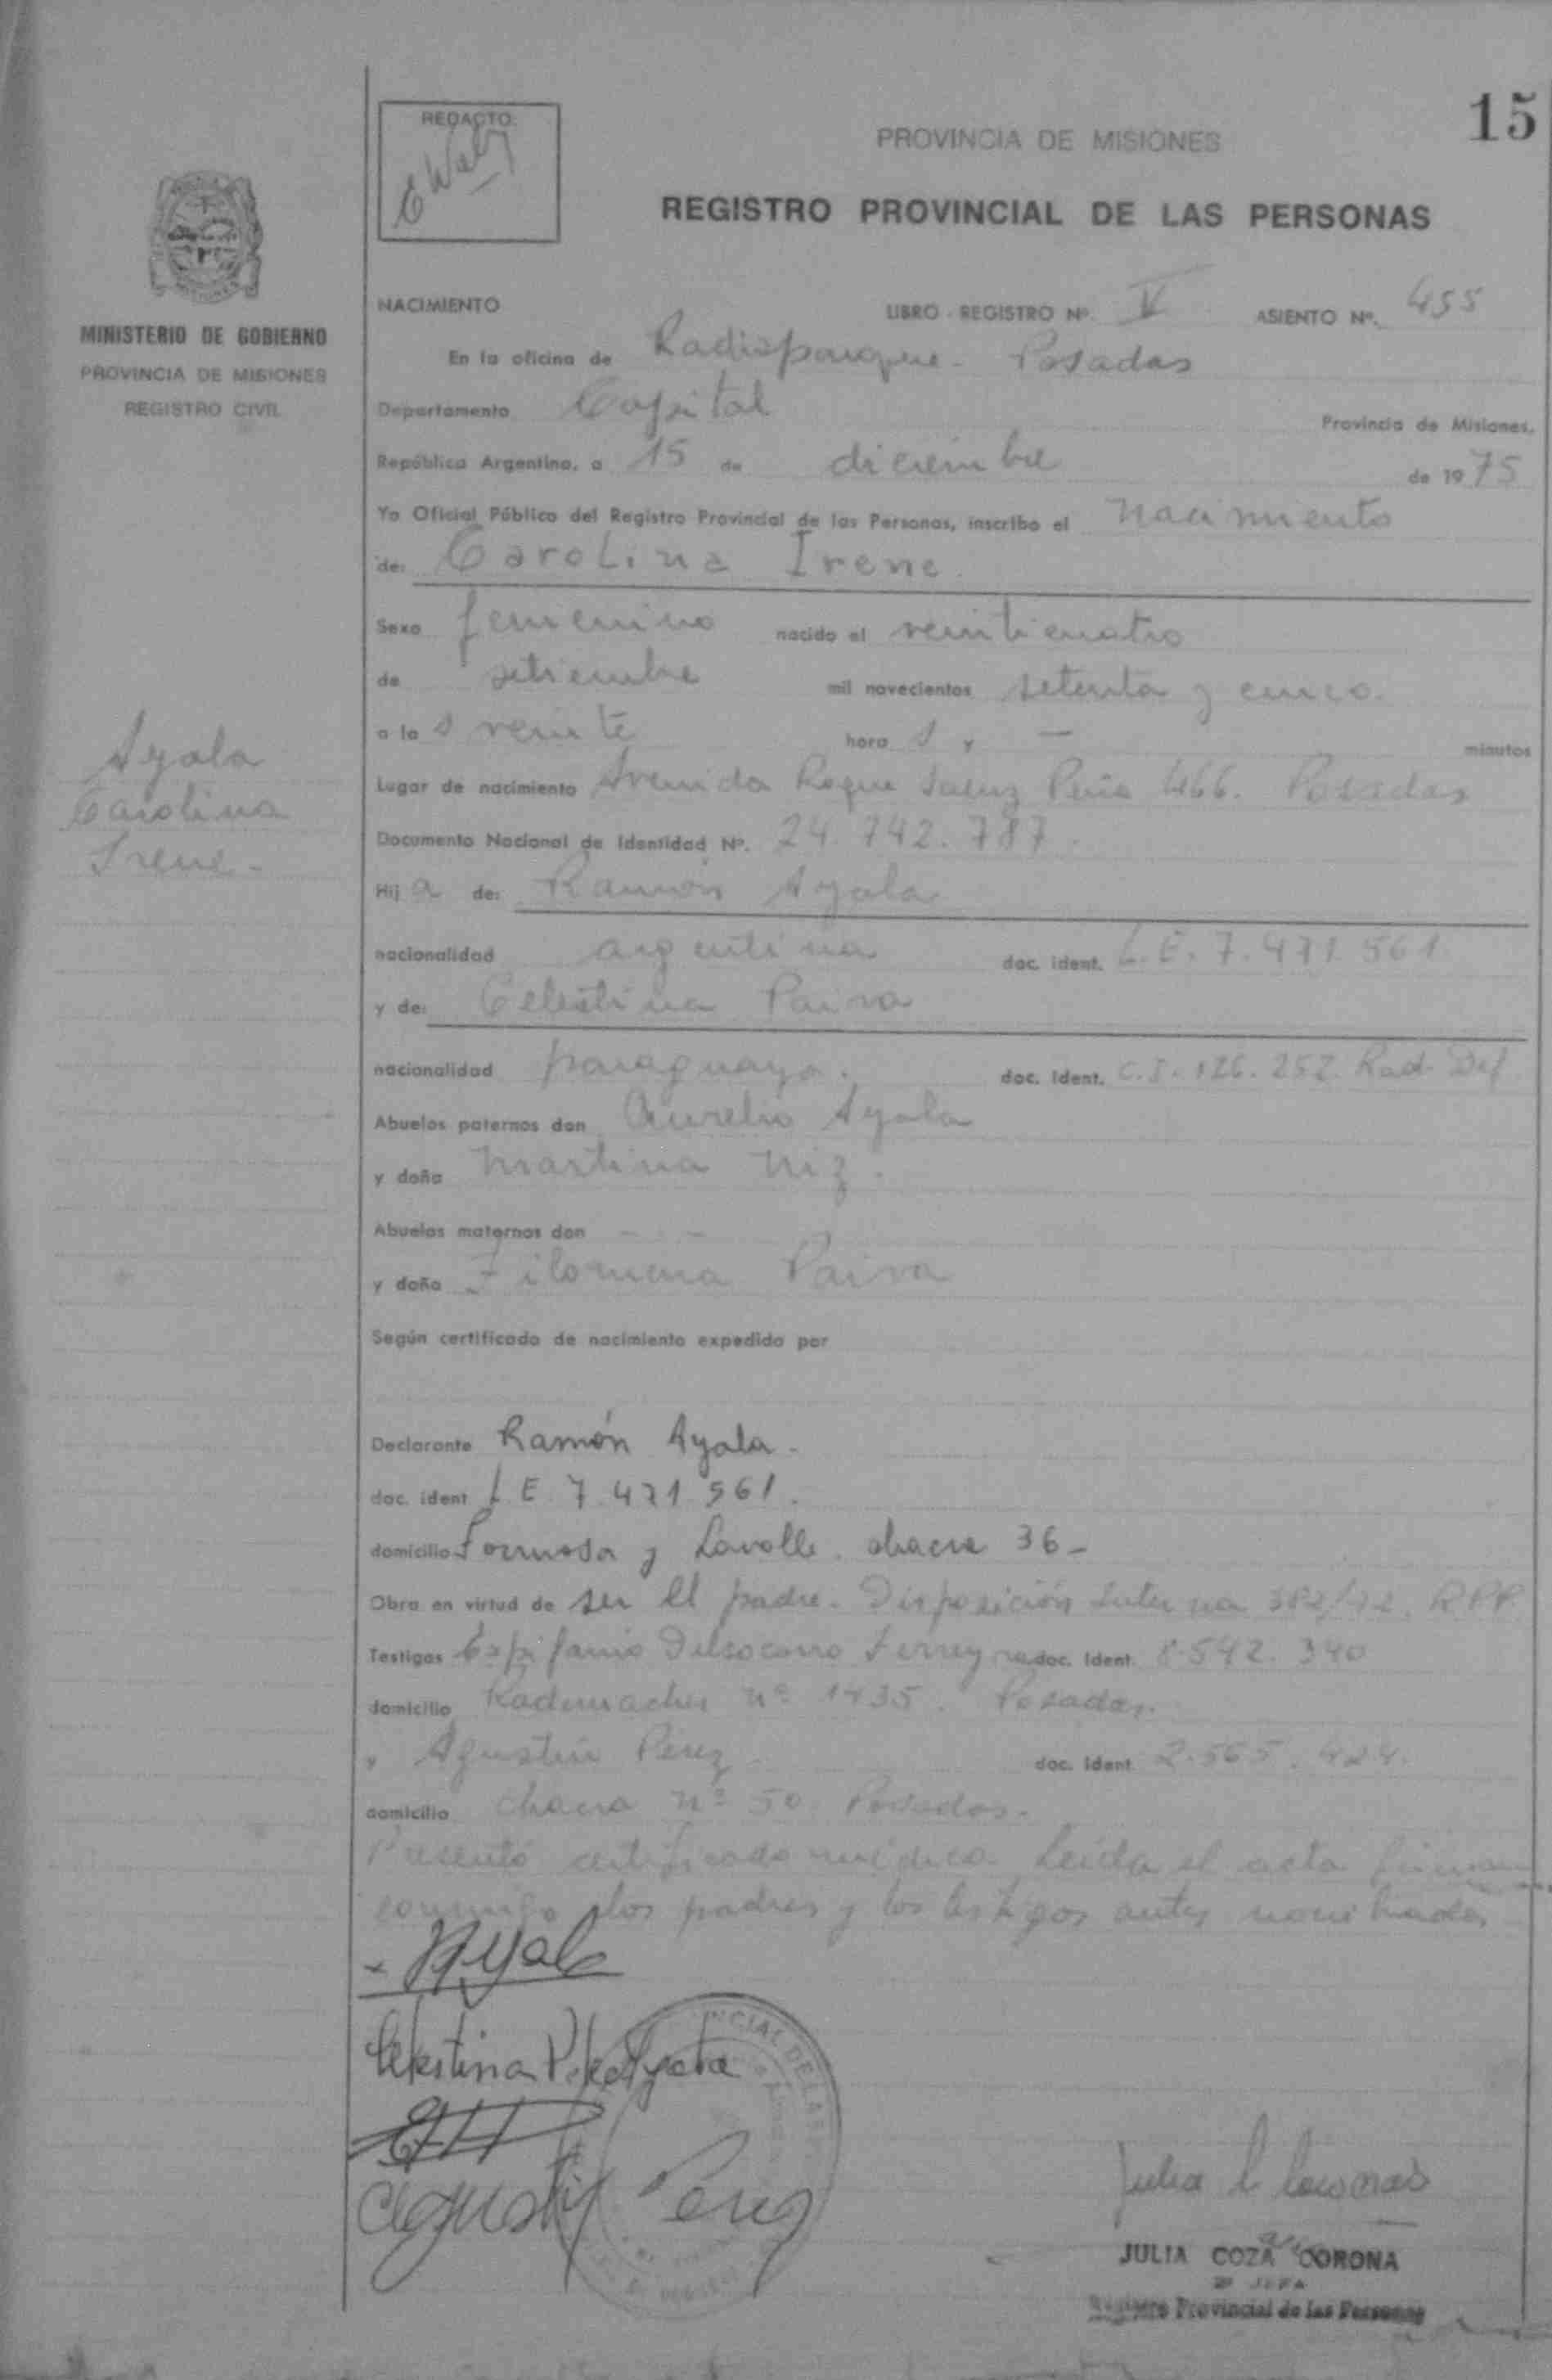 15
REDACTO:
PROVINCIA DE MISIONES
REGISTRO PROVINCIAL DE LAS PERSONAS
MINISTERIO DE GOBIERNO
PROVINCIA DE MISIONES
REGISTRO CIVIL
NACIMIENTO LIBRO - REGISTRO Nº. V ASIENTO Nº. 455
En la oficina de Radioparque - Posadas
Departamento Capital Provincia de Misiones,
República Argentina, a 15 de diciembre de 1975
Yo Oficial Público del Registro Provincial de las Personas, inscribo el nacimiento
de: Carolina Irene
Sexo femenino nacido el veinticuatro
de setiembre mil novecientos setenta y cinco.
a las veinte horas y — minutos
Ayala
Carolina
Irene -
Lugar de nacimiento Avenida Roque Saenz Peña 466. Posadas
Documento Nacional de Identidad Nº. 24.742.787.
Hija de: Ramón Ayala
nacionalidad argentina doc. ident. L.E. 7.471.561
y de: Celestina Paiva
nacionalidad paraguaya. doc. ident. C.I. 126.252 Rad. Def
Abuelos paternos don Aurelio Ayala
y doña Martina Niz.
Abuelos maternos don - -
y doña Filomena Paiva
Según certificado de nacimiento expedido por
Declarante Ramón Ayala -
doc. ident L.E 7.471.561.
domicilio Formosa y Lavalle. chacra 36 -
Obra en virtud de ser el padre - Disposición Interna 382/72. RPP
Testigos Espifanio Delsocorro Ferreyra doc. ident. 8.542.340
domicilio Rademacher nº 1435. Posadas.
y Agustín Pérez doc. ident. 2.565.424.
domicilio chacra nº 50. Posadas.
Presentó certificado médico. Leída el acta firman
conmigo los padres y los testigos antes nombrados
- Ayala
Celestina P. de Ayala
Agustin Perez
JULIA COZA CORONA
JEFA
Registro Provincial de las Personas